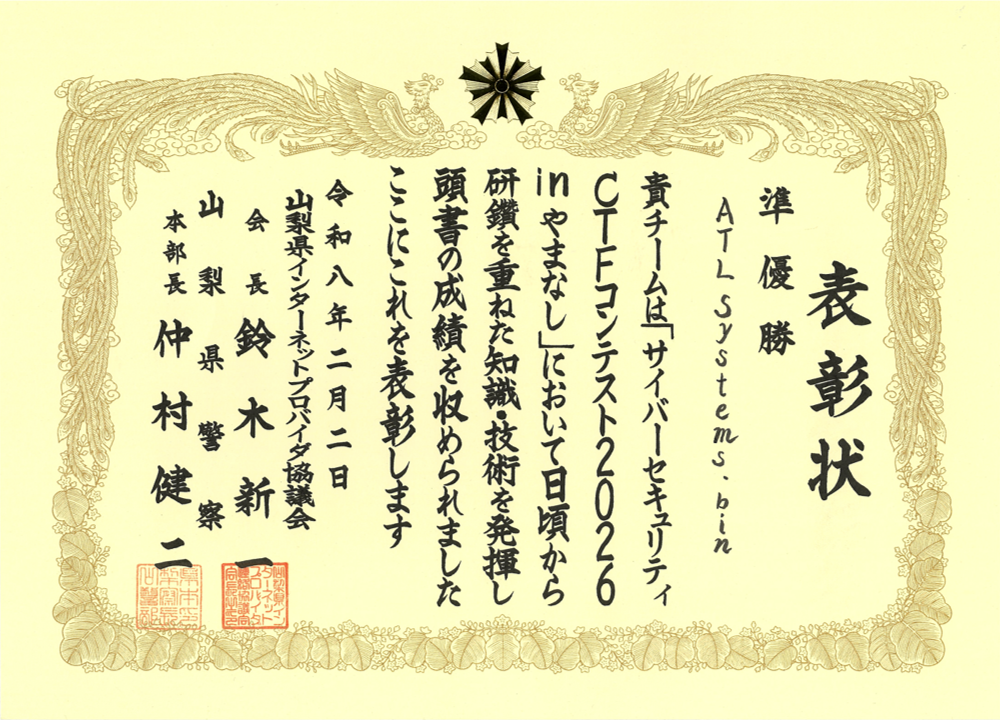 表彰状
準優勝
ATL Systems.bin
貴チームは「サイバーセキュリティ
CTFコンテスト2026
inやまなし」において日頃から
研鑽を重ねた知識・技術を発揮し
頭書の成績を収められました
ここにこれを表彰します
令和八年二月二日
山梨県インターネットプロバイダ協議会
会長 鈴木新一
山梨県警察
本部長 仲村健二